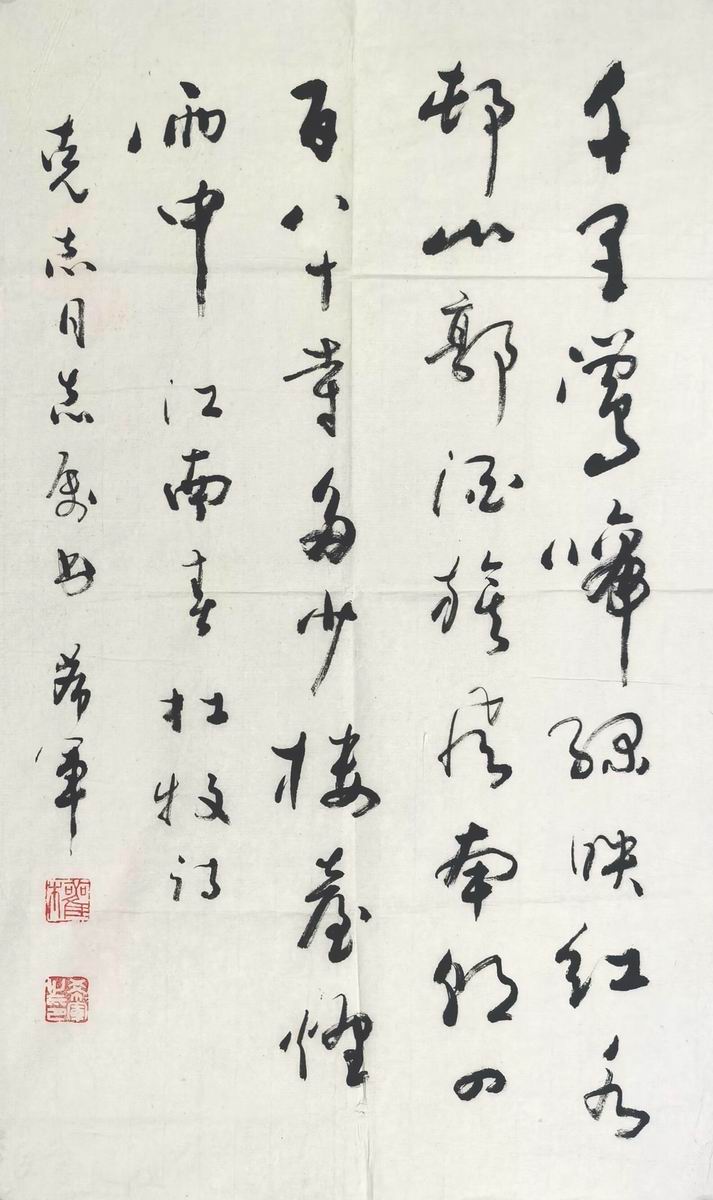 千里莺啼绿映红水
村山郭酒旗风南朝四
百八十寺多少楼台烟
雨中 江南春 杜牧诗
克志同志属书 希军